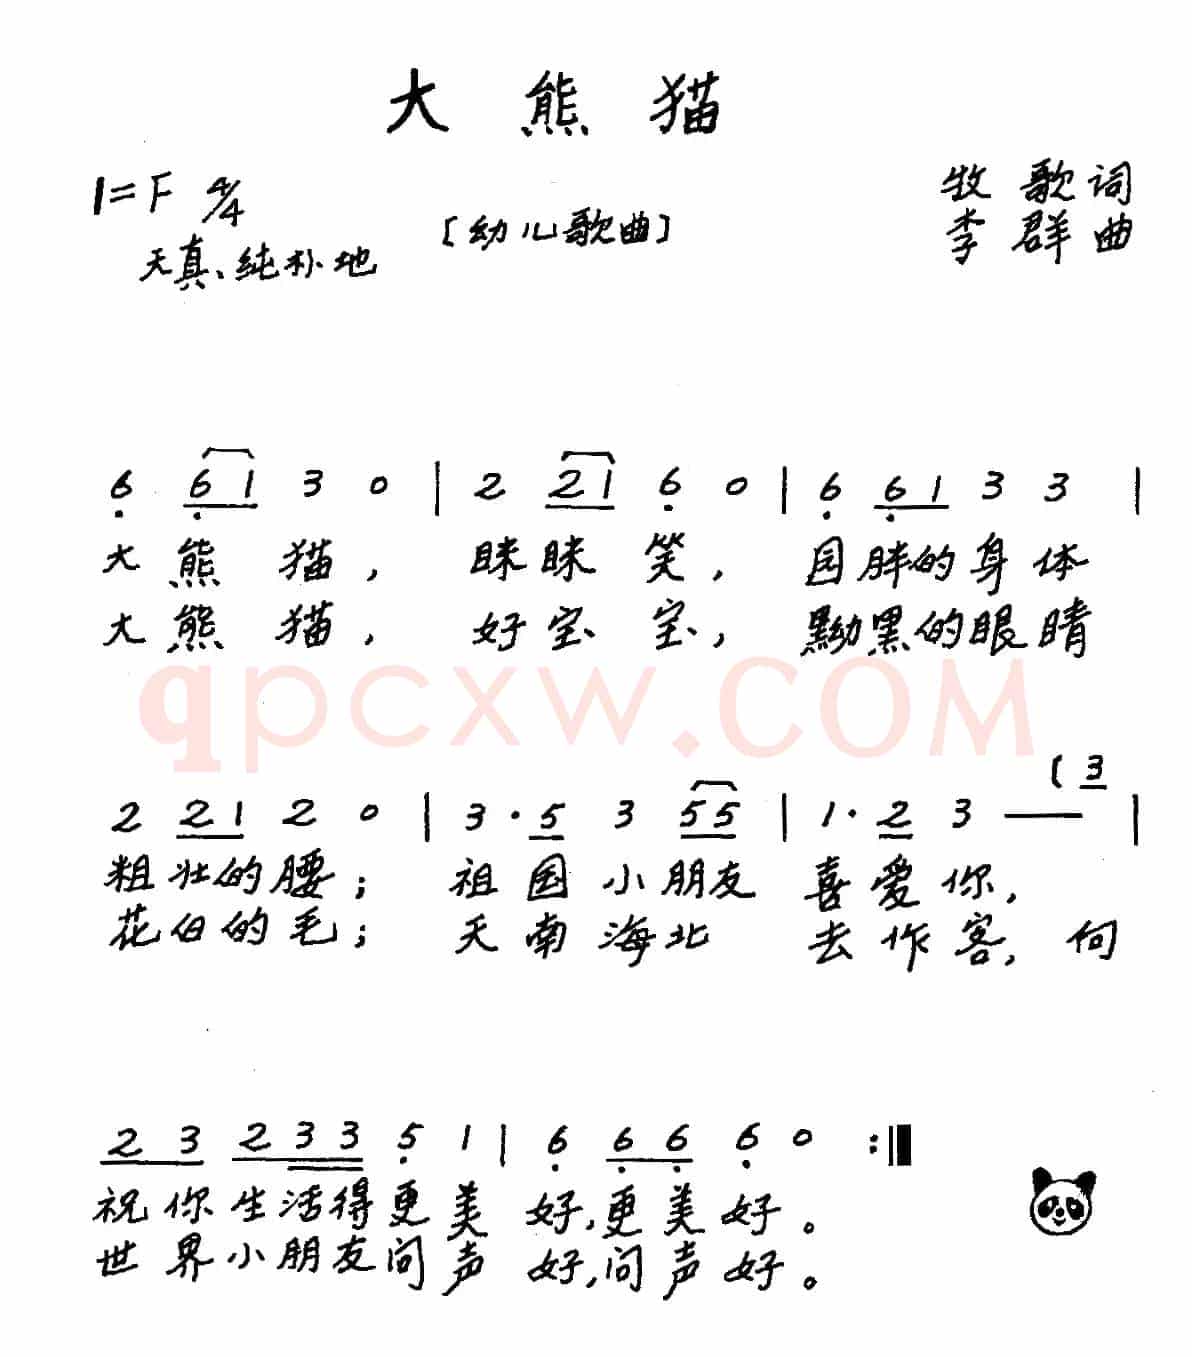 大熊猫
1=F 4/4
牧歌词
[幼儿歌曲]
李群曲
天真、纯朴地
6 6 1 3 0 | 2 2 1 6 0 | 6 6 1 3 3 |
大熊猫，眯眯笑，园胖的身体
大熊猫，好宝宝，黝黑的眼睛
qpcxw.COM
(3
2 2 1 2 0 | 3·5 3 5 5 | 1·2 3 — |
粗壮的腰；祖国小朋友喜爱你，
花白的毛；天南海北去作客，向
2 3 2 3 3 5 1 | 6 6 6 6 0 :||
祝你生活得更美好，更美好。
世界小朋友问声好，问声好。